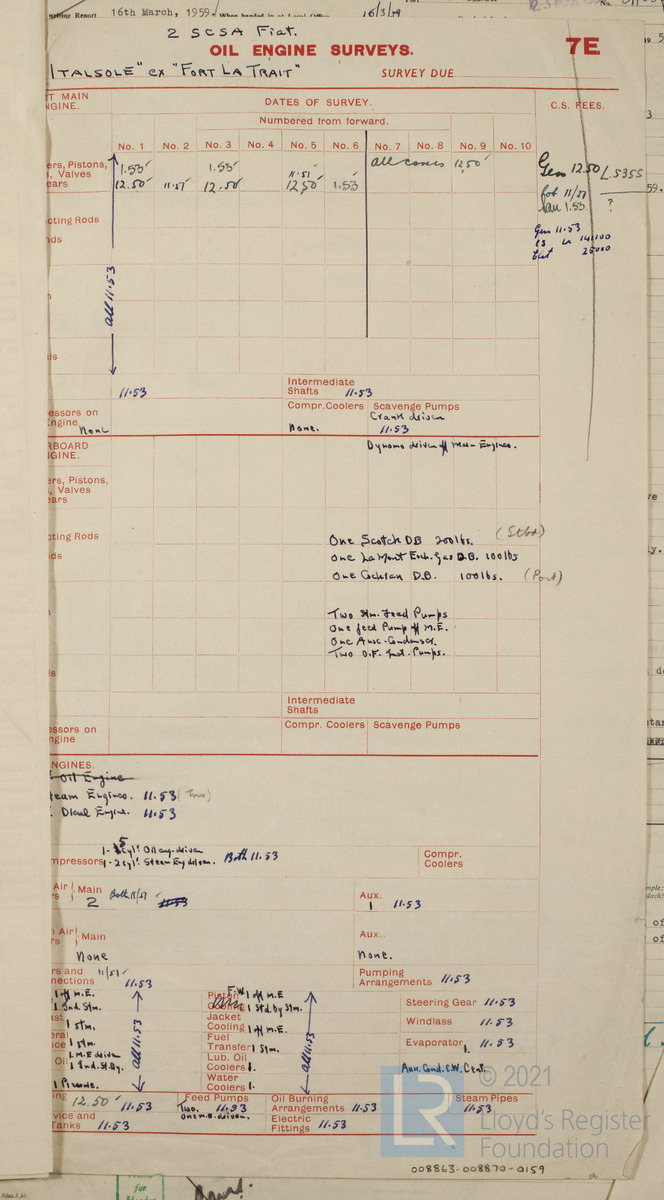 16th March, 1959
When handed in at Local Office 16/3/59
2 SCSA Fiat.
OIL ENGINE SURVEYS.
7E
ITALSOLE" ex "FORT LA TRAIT"
SURVEY DUE
T MAIN
NGINE.
DATES OF SURVEY.
C.S. FEES.
Numbered from forward.
No. 1 No. 2 No. 3 No. 4 No. 5 No. 6 No. 7 No. 8 No. 9 No. 10
ers, Pistons,
, Valves
ears
1.53 1.53 11.51 all cases 12.50
12.50 11.57 12.50 12.50 1.53
Gen 12.50 L.5355
11/57
1.53 ?
Gen 11.53
141100
25000
cting Rods
ds
all 11.53
ls
11.53
Intermediate
Shafts 11.53
essors on
Engine None
Compr. Coolers
None.
Scavenge Pumps
Crank driven
11.53
RBOARD
GINE.
Dynamo driven off Main Engines.
ers, Pistons,
, Valves
ears
cting Rods
ds
One Scotch DB 200lbs. (Stbd)
One La Mont Exh. Gas D.B. 100lbs
One Cochran D.B. 100lbs. (Port)
Two Stm. Feed Pumps
One feed Pump off M.E.
One Aux. Condenser.
Two O.F. Inst. Pumps.
ls
Intermediate
Shafts
essors on
ngine
Compr. Coolers
Scavenge Pumps
NGINES.
Oil Engine
team Engines. 11.53 (Two)
Diesel Engine. 11.53
mpressors
1- 5 cyl. Oil eng. driven
1- 2 cyl. Steam Eng driven.
Both 11.53
Compr.
Coolers
Air
rs
Main
2
Both 11/57
11.53
Aux.
1 11.53
Air
rs
Main
None
Aux..
None.
rs and
nections 11/57 11.53
Pumping
Arrangements 11.53
1 off M.E.
1 Ind. Stm.
1 Stm.
1 Stm.
1 M.E driven
1 Ind. St.By.
all 11.53
Piston F.W. 1 off M.E
1 Std. by Stm.
Jacket
Cooling 1 off M.E.
Fuel
Transfer 1 Stm.
Lub. Oil
Coolers 1.
Water
Coolers 1.
all 11.53
Steering Gear 11.53
Windlass 11.53
Evaporator 1. 11.53
Aux. Cond. C.W. Cent.
12.50 11.53
vice and
Tanks 11.53
Feed Pumps
Two. 11.53
One M.E. driven.
Oil Burning
Arrangements 11.53
Electric
Fittings 11.53
Steam Pipes
11.53
© 2021
LR
Lloyd's Register
Foundation
008863-008870-0159
for